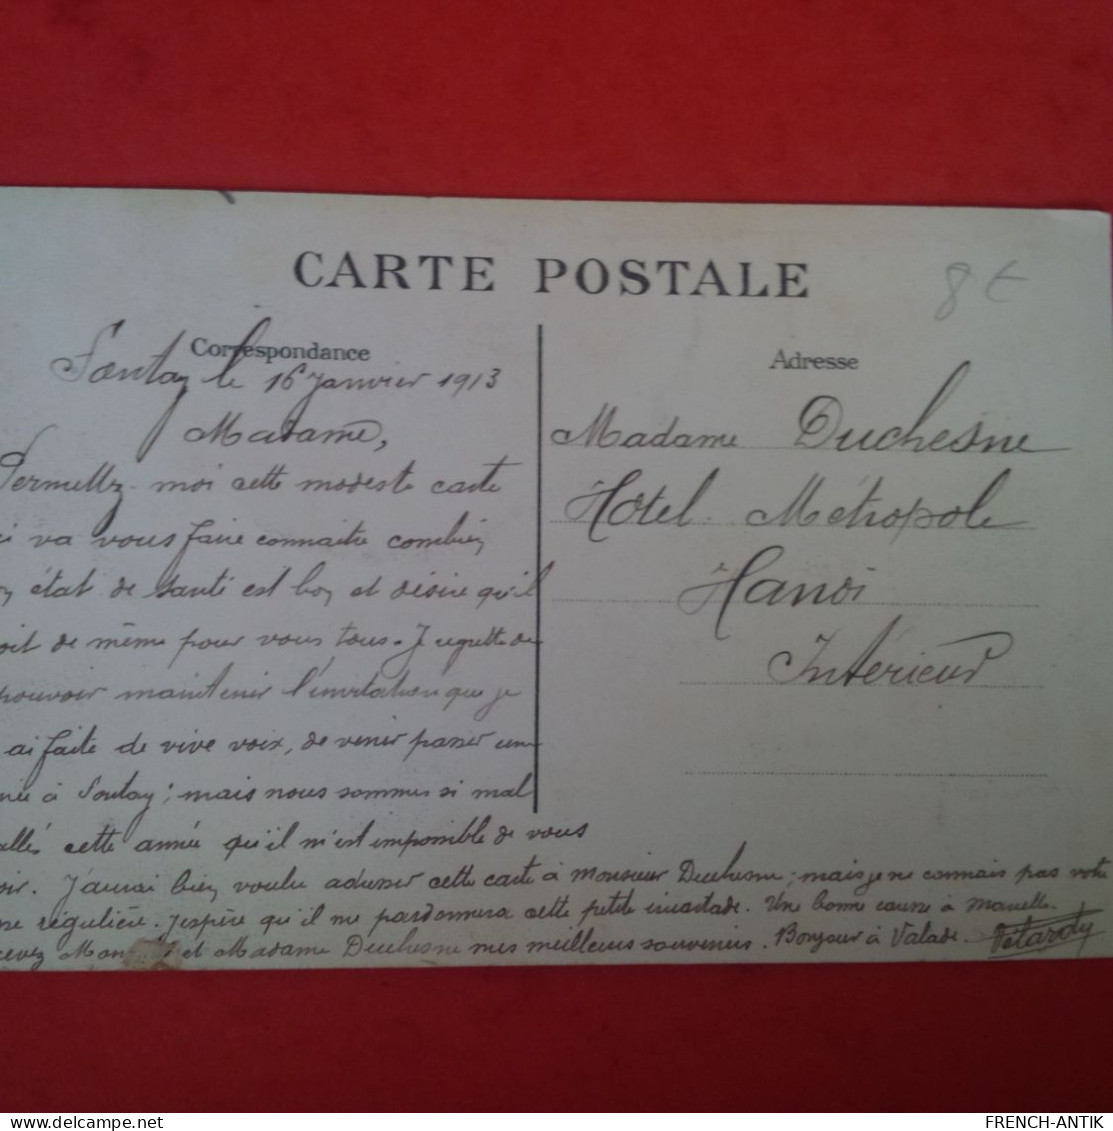 CARTE POSTALE
8 €
Correspondance
Sontay le 16 janvier 1913
Madame,
Permettez-moi cette modeste carte
i va vous faire connaitre combien
n état de santé est bon et désire qu'il
oit de même pour vous tous. Je regrette de
pouvoir maintenir l'invitation que je
ai faite de vive voix, de venir passer une
née à Sontay; mais nous sommes si mal
allés cette année qu'il m'est impossible de vous
oir. J'aurai bien voulu adresser cette carte à Monsieur Duchesne; mais je ne connais pas votre
me régulière. J'espère qu'il me pardonnera cette petite incartade. Une bonne caresse à
cevez et Madame Duchesne mes meilleurs souvenirs. Bonjour à Valade.
Adresse
Madame Duchesne
Hotel Métropole
Hanoi
Intérieur
FRENCH-ANTIK